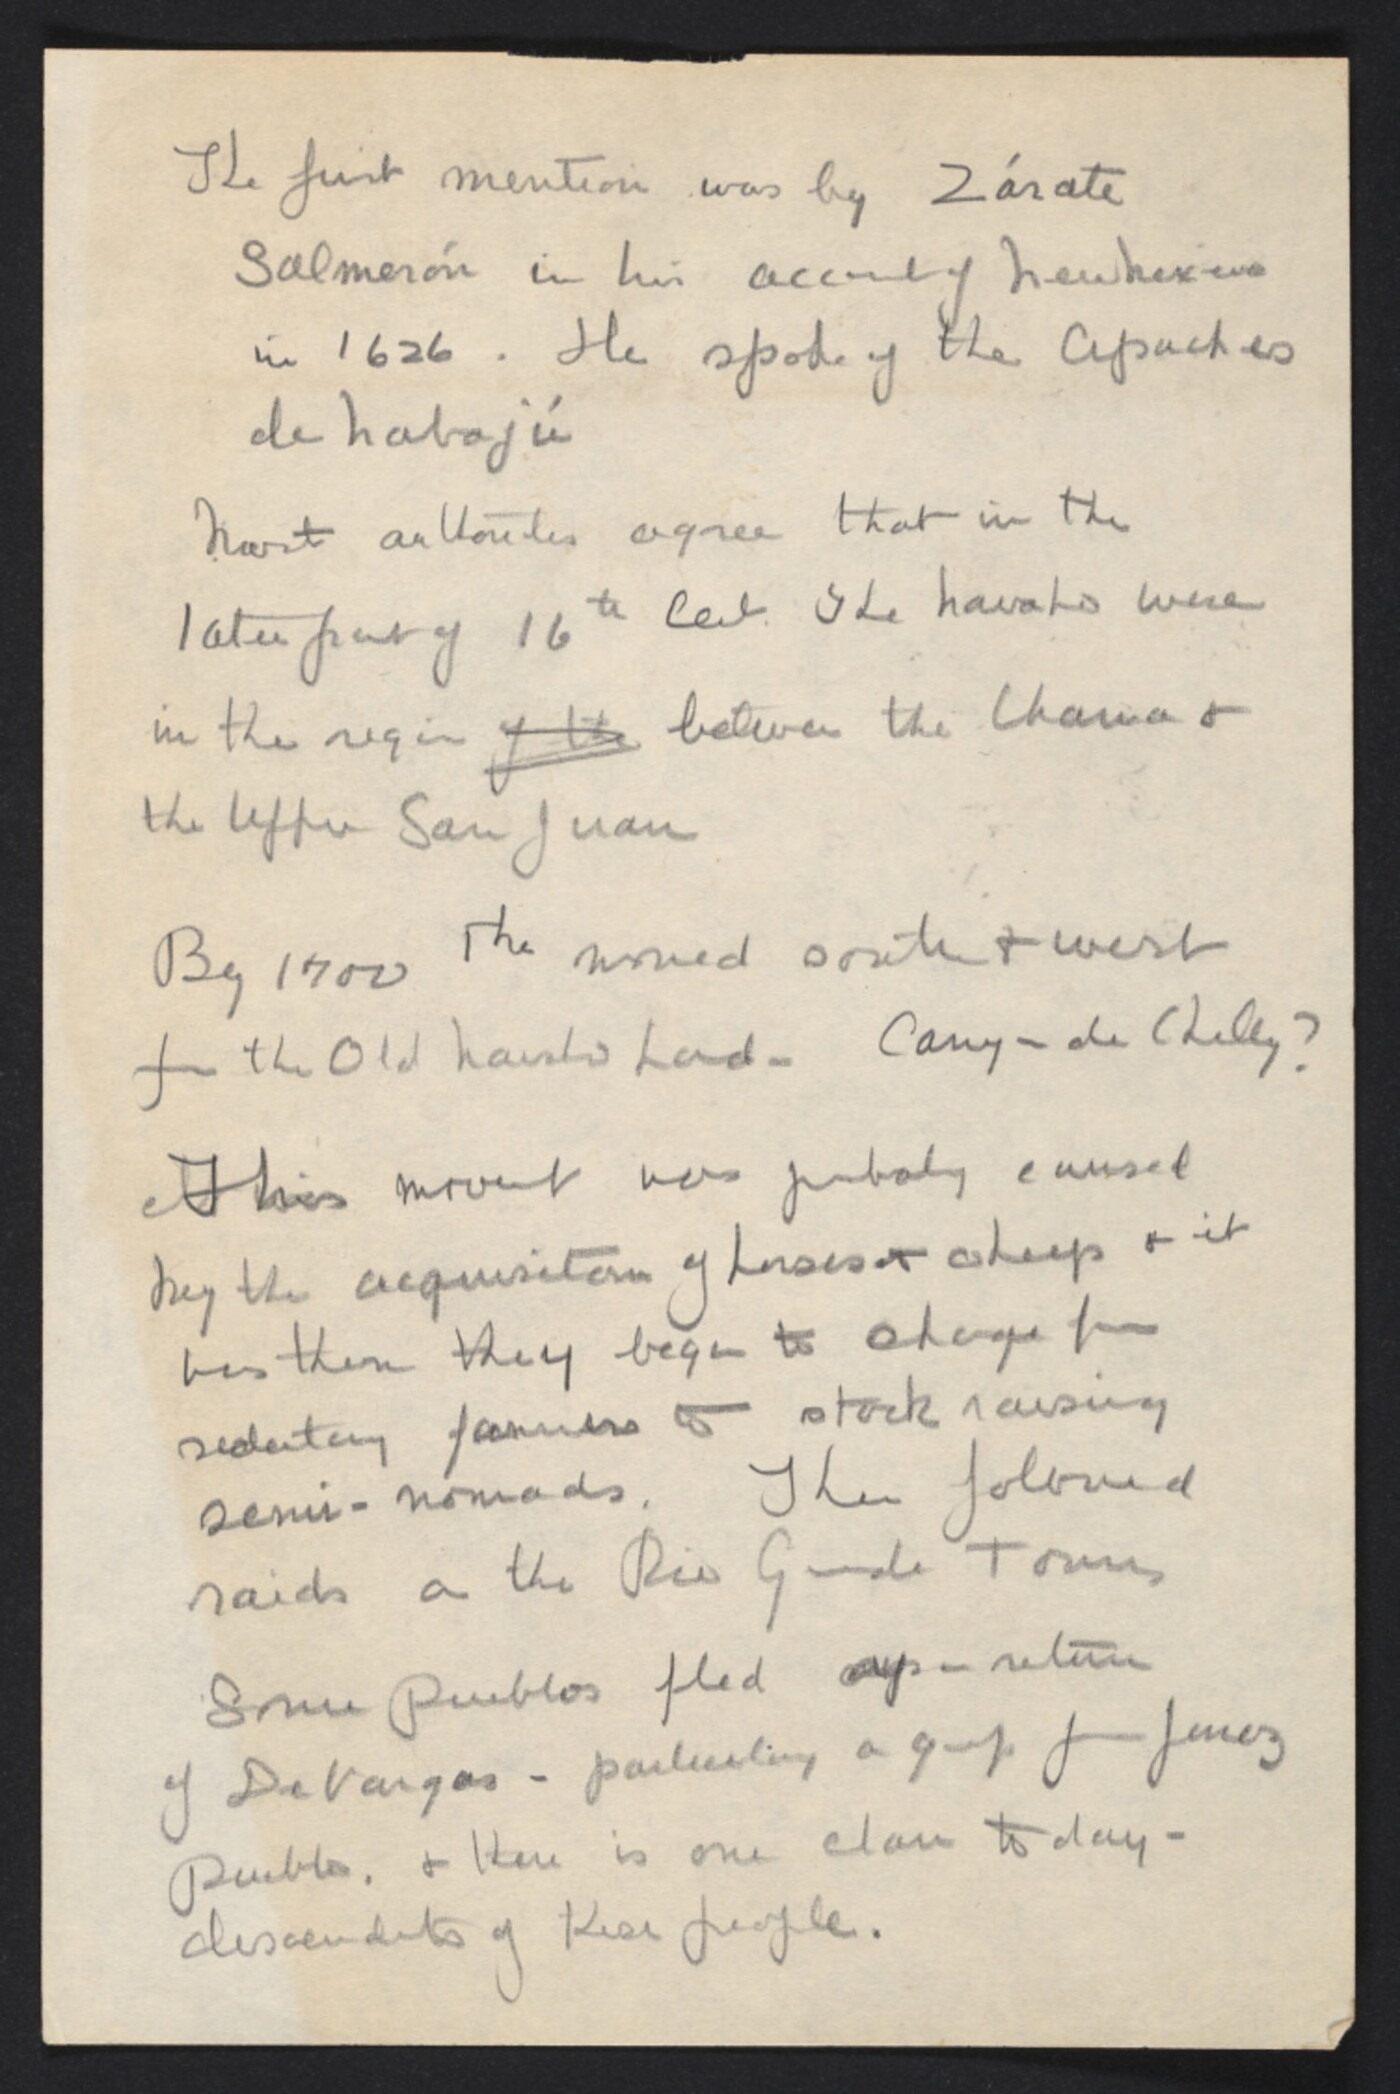 The first mention was by Zárate
Salmerón in his account of New Mexico
in 1626. He spoke of the Apaches
de Nabajú
Most authorities agree that in the
later part of 16th Cent. The Navaho were
in the region of the between the Chama &
the Upper San Juan
By 1700 The moved south & west
for the Old Navaho Land - Canyon de Chelly?
This movent was probaly caused
by the acquisition of horses & sheep & it
was then they began to change from
sedentary farmers to stock raising
semi-nomads. Then folowed
raids on the Rio Grande Towns
Some Pueblos fled upon return
of De Vargas - particularly a group from Jemez
Pueblo. & there is one clan today -
descendents of these people.